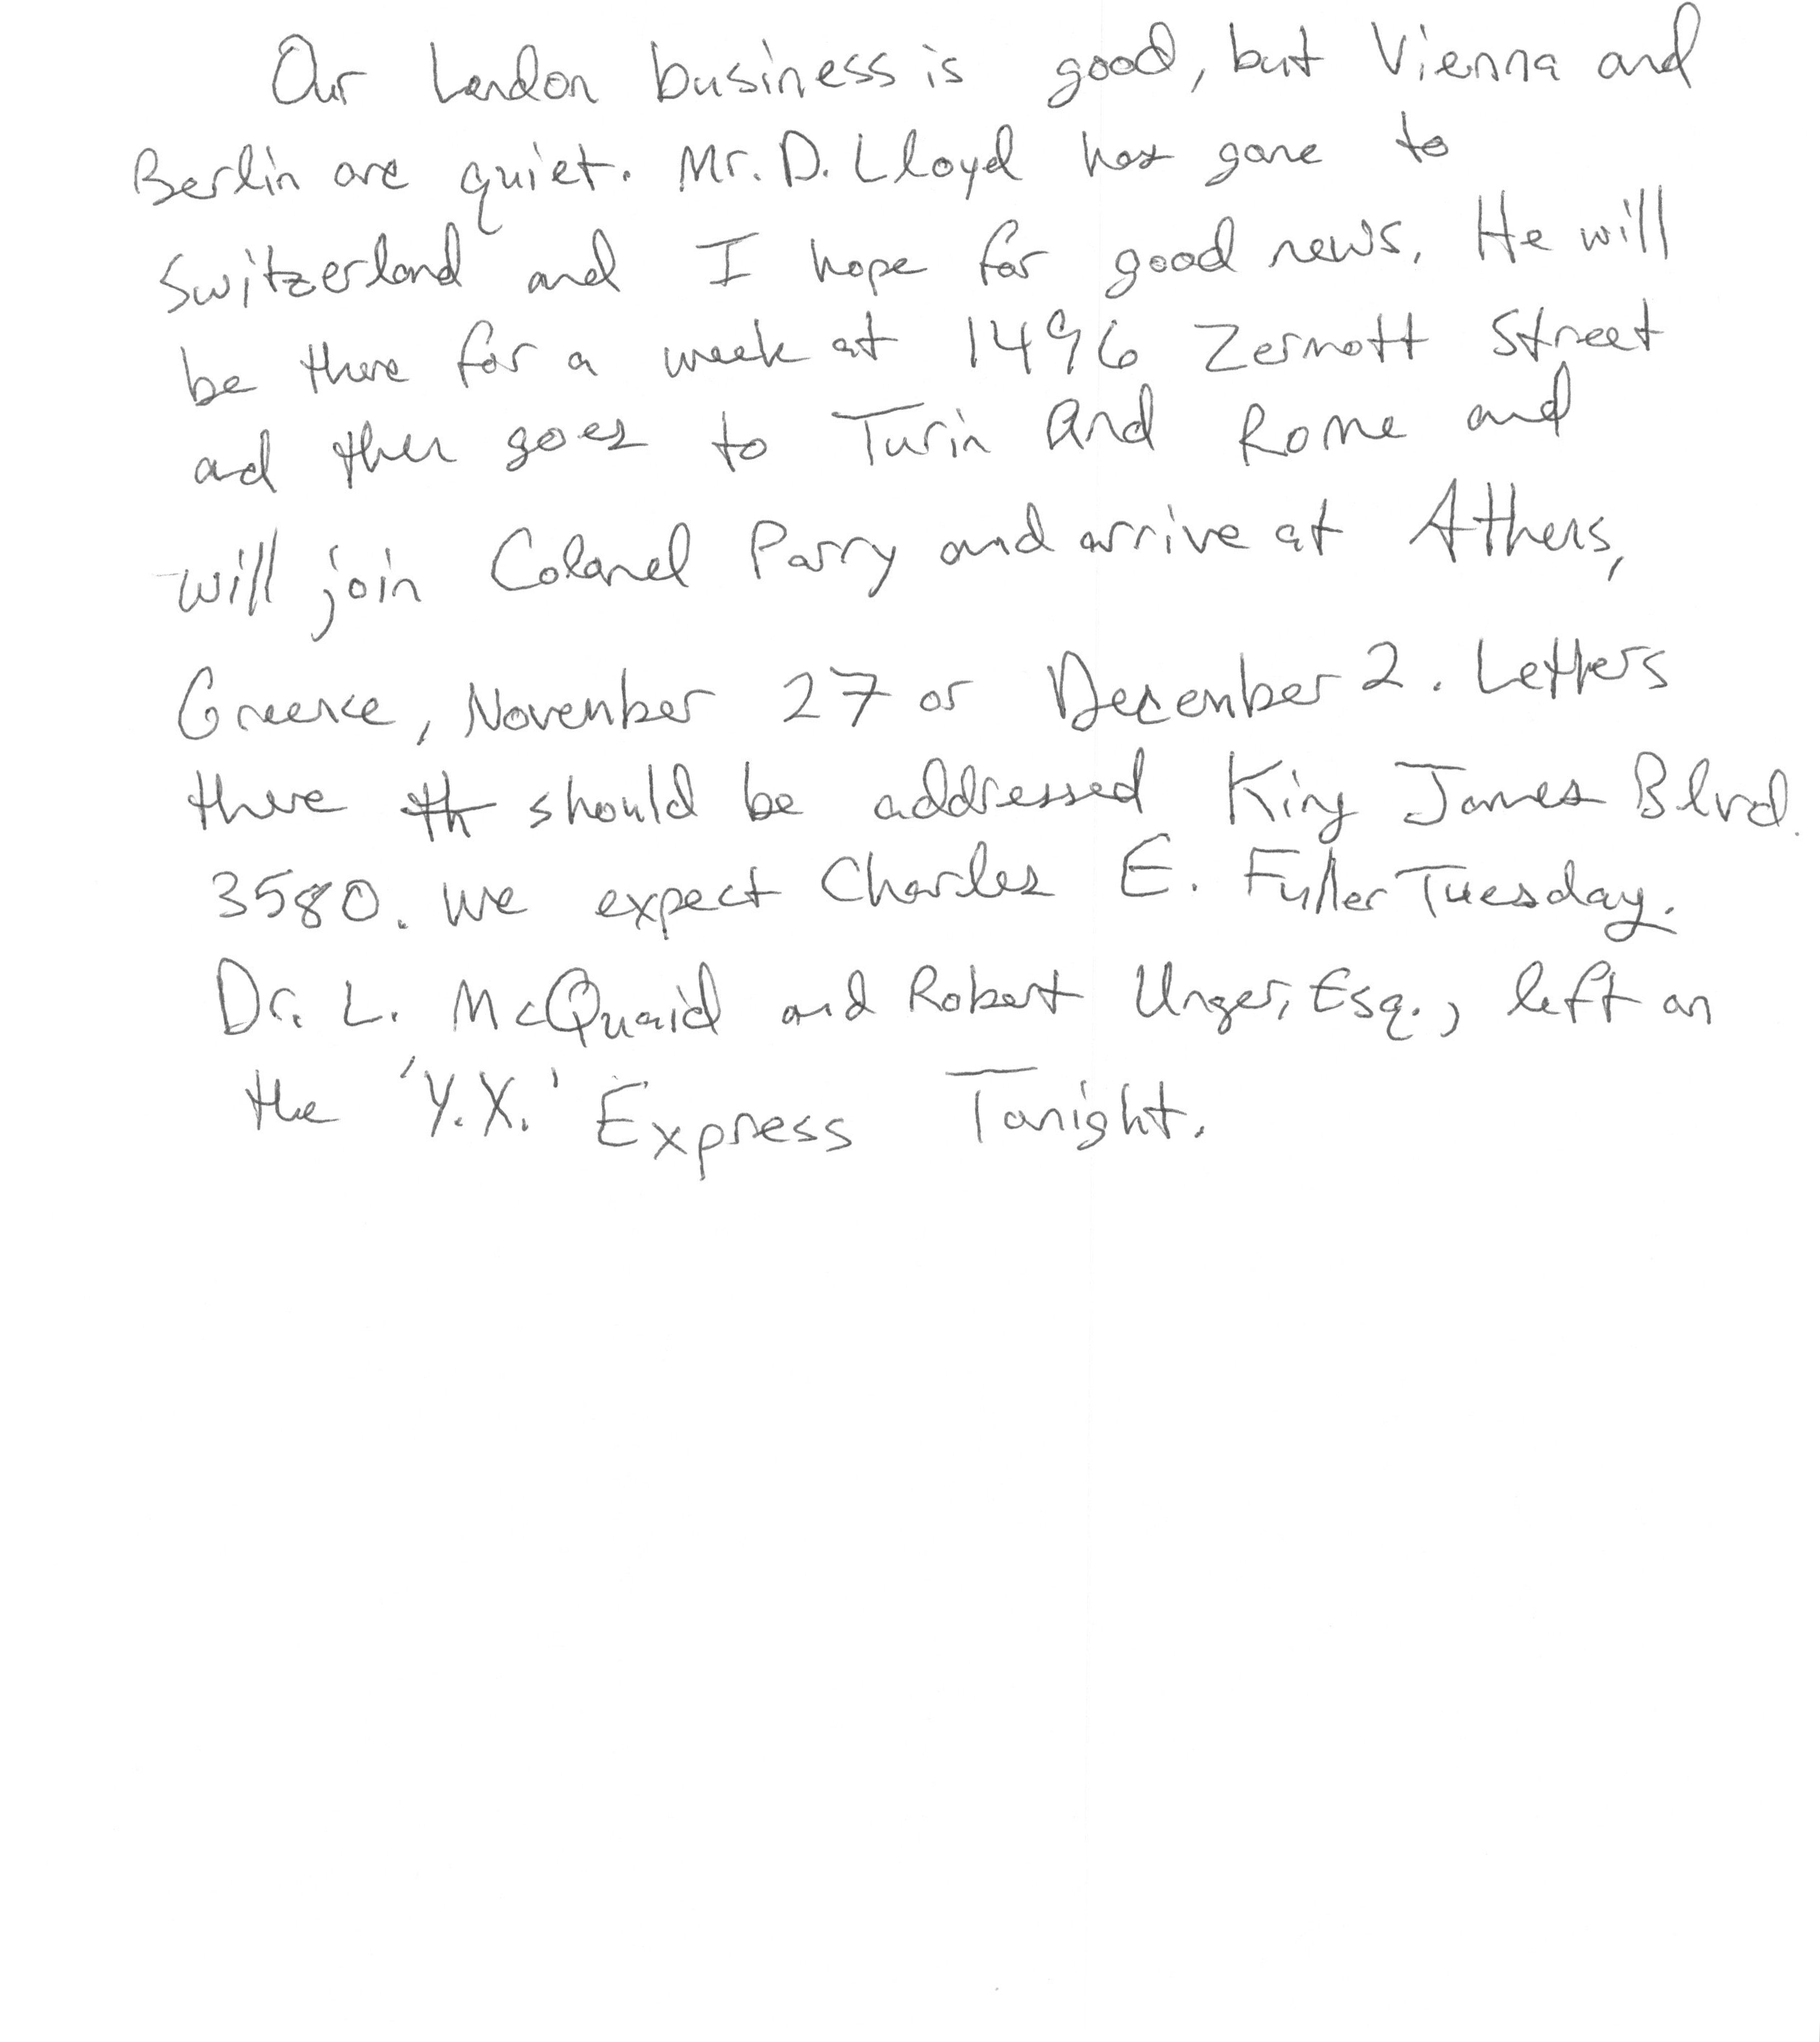 Our London business is good, but Vienna and
Berlin are quiet. Mr. D. Lloyd has gone to
Switzerland and I hope for good news. He will
be there for a week at 1496 Zermott Street
and then goes to Turin and Rome and
will join Colonel Parry and arrive at Athens,
Greece, November 27 or December 2. Letters
there should be addressed King James Blvd.
3580. We expect Charles E. Fuller Tuesday.
Dr. L. McQuaid and Robert Unger, Esq., left on
the 'Y.X.' Express Tonight.